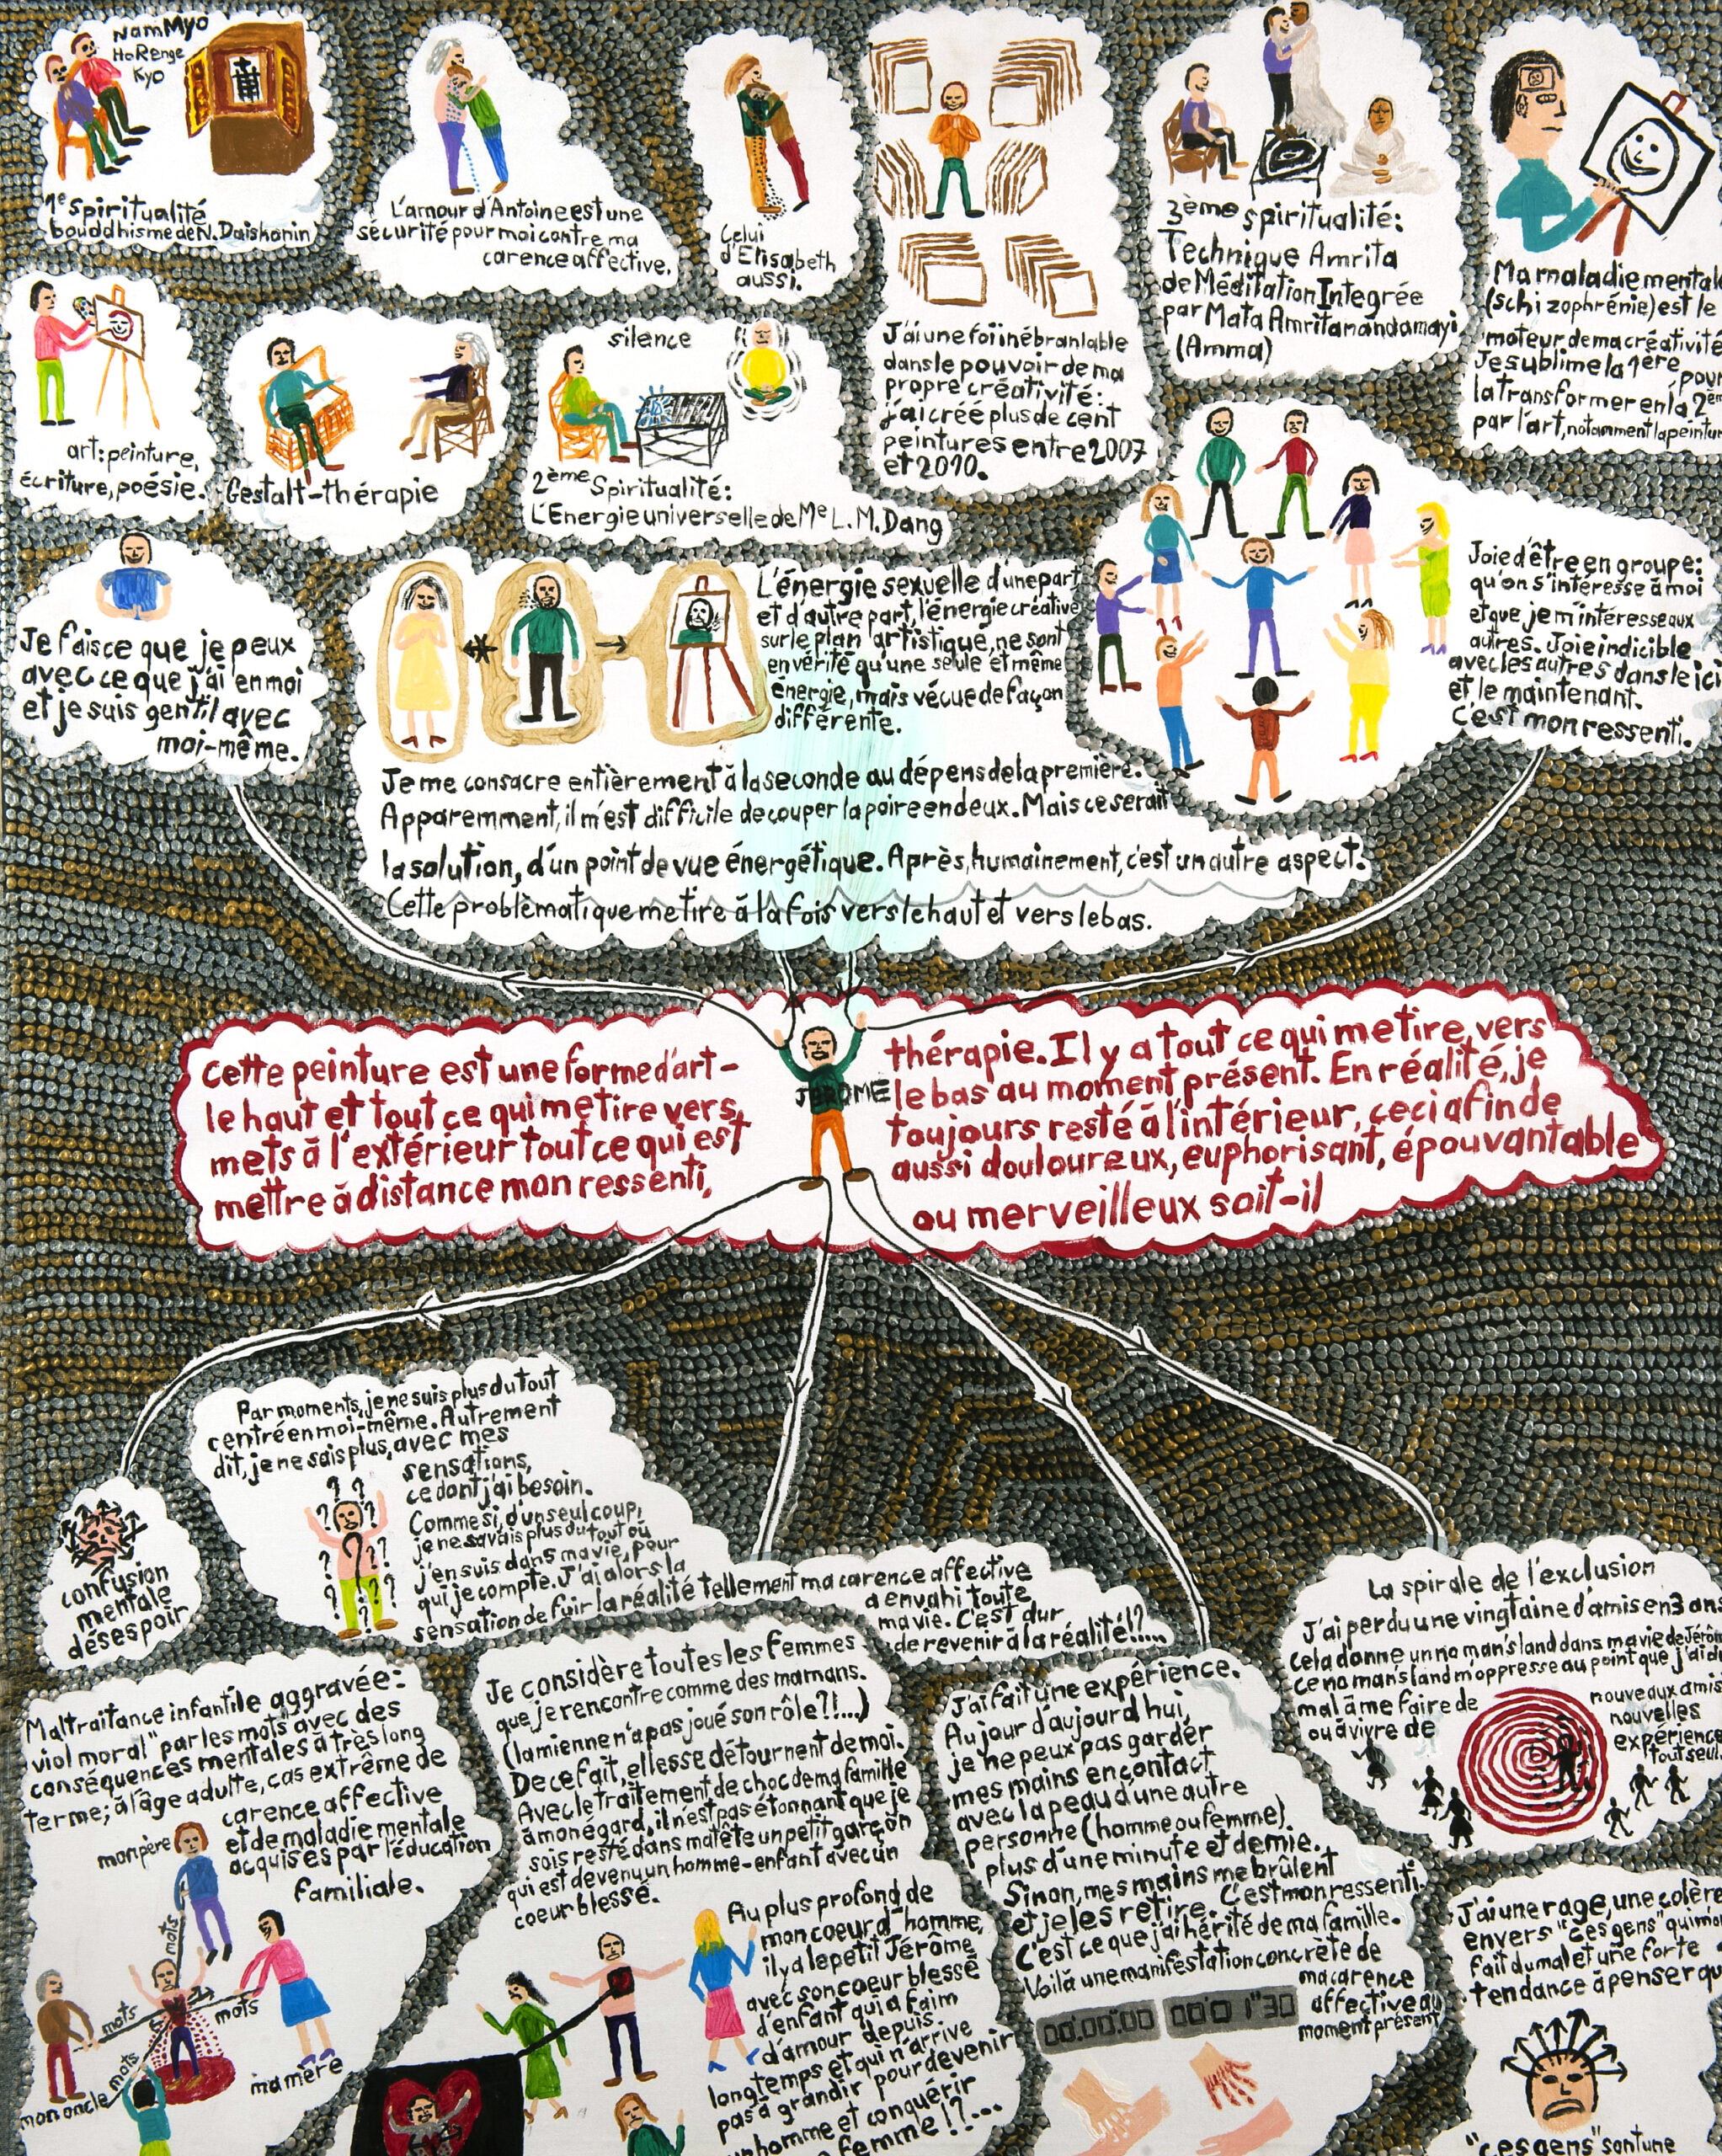 NamMyo
HoRenge
Kyo
1e Spiritualité
bouddhisme de N. Daishonin
L'amour d'Antoine est une
sécurité pour moi contre ma
carence affective.
Celui
d'Elisabeth
aussi.
J'ai une foi inébranlable
dans le pouvoir de ma
propre créativité:
j'ai créé plus de cent
peintures entre 2007
et 2010.
3ème spiritualité:
Technique Amrita
de Méditation Integrée
par Mata Amritanandamayi
(Amma)
Ma maladie mentale
(schizophrénie) est le
moteur de ma créativité
Je sublime la 1ère pour
la transformer en la 2èm
par l'art, notamment la peintur
art: peinture,
écriture, poésie.
Gestalt-thérapie
silence
2ème Spiritualité:
L'Energie universelle de Me L. M. Dang
Je fais ce que je peux
avec ce que j'ai en moi
et je suis gentil avec
moi-même.
L'énergie sexuelle d'une part
et d'autre part, l'énergie créative
sur le plan artistique, ne sont
en vérité qu'une seule et même
énergie, mais vécue de façon
différente.
Je me consacre entièrement à la seconde au dépens de la première.
Apparemment, il m'est difficile de couper la poire en deux. Mais ce serait
la solution, d'un point de vue énergétique. Après, humainement, c'est un autre aspect.
Cette problèmatique me tire à la fois vers le haut et vers le bas.
Joie d'être en groupe:
qu'on s'intéresse à moi
et que je m'intéresse aux
autres. Joie indicible
avec les autres dans le ici
et le maintenant.
C'est mon ressenti.
Cette peinture est une forme d'art-
thérapie. Il y a tout ce qui me tire vers
le haut et tout ce qui me tire vers
le bas au moment présent. En réalité, je
mets à l'extérieur tout ce qui est
toujours resté à l'intérieur, ceci afin de
mettre à distance mon ressenti,
aussi douloureux, euphorisant, épouvantable
ou merveilleux soit-il
JEROME
confusion
mentale
désespoir
Par moments, je ne suis plus du tout
centré en moi-même. Autrement
dit, je ne sais plus, avec mes
sensations,
ce dont j'ai besoin.
Comme si, d'un seul coup,
je ne savais plus du tout où
j'en suis dans ma vie, pour
qui je compte. J'ai alors la
sensation de fuir la réalité tellement ma carence affective
a envahi toute
ma vie. C'est dur
de revenir à la réalité!?....
? ? ? ? ? ? ? ? ? ? ?
La spirale de l'exclusion
J'ai perdu une vingtaine d'amis en 3 ans
Cela donne un no man's land dans ma vie de Jérôm
Ce no man's land m'oppresse au point que j'ai du
mal à me faire de
nouveaux amis
ou à vivre de
nouvelles
expérience
tout seul.
Maltraitance infantile aggravée:
viol moral" par les mots avec des
conséquences mentales à très long
terme; à l'âge adulte, cas extrême de
carence affective
et de maladie mentale
acquises par l'éducation
familiale.
mon père
mots
mots
mots
mots
mon oncle
ma mère
Je considère toutes les femmes
que je rencontre comme des mamans.
(la mienne n'a pas joué son rôle?!...)
De ce fait, elles se détournent de moi.
Avec le traitement de choc de ma famille
à mon égard, il n'est pas étonnant que je
sois resté dans ma tête un petit garçon
qui est devenu un homme-enfant avec un
coeur blessé.
Au plus profond de
mon coeur d'homme,
il y a le petit Jérôme
avec son coeur blessé
d'enfant qui a faim
d'amour depuis
longtemps et qui n'arrive
pas à grandir pour devenir
un homme et conquérir
femme!?...
J'ai fait une expérience.
Au jour d'aujourd'hui,
je ne peux pas garder
mes mains en contact
avec la peau d'une autre
personne (homme ou femme)
plus d'une minute et demie.
Sinon, mes mains me brûlent
et je les retire. C'est mon ressenti.
C'est ce que j'ai hérité de ma famille.
Voilà une manifestation concrète de
ma carence
affective au
moment présent
00:00:00 00:01"30
J'ai une rage, une colère
envers "ces gens" qui m'on
fait du mal et une forte
tendance à penser qu
"ces gens" sont une